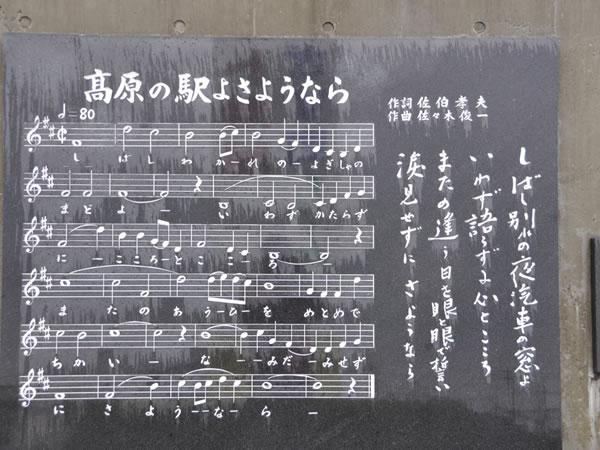 高原の駅よさようなら
作詞 佐伯孝夫
作曲 佐々木俊一
♩=80
しばしわかーれのーよぎしゃの
まどよーいわずかたらず
にーこころーとこころー
またのあうーひーをめとめで
ちかいーなーーみだーみせず
にさようーーなーらー
しばし別れの夜汽車の窓よ
いわず語らずに心とこころ
またの逢う日を眼と眼で誓い
涙見せずにさようなら